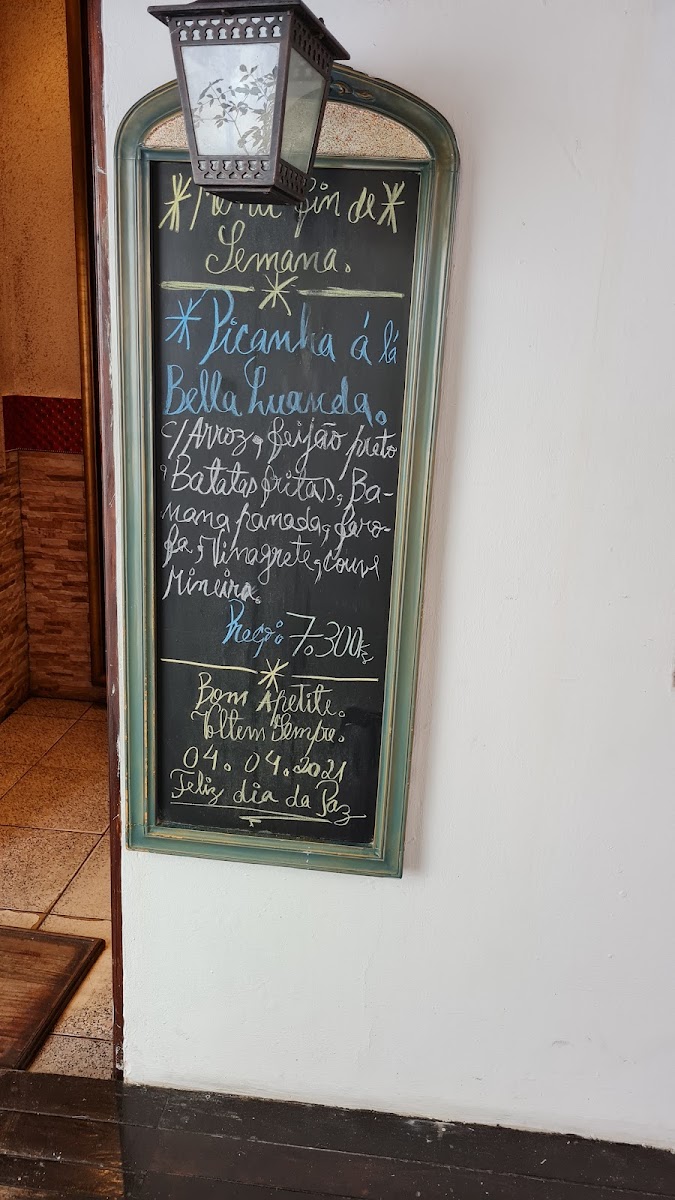 Menu fin de
Semana.
Picanha á lá
Bella Luanda.
c/Arroz, feijão preto
, Batatas fritas, Ba-
nana panada, faro-
fa, Vinagrete, couve
Mineira.
Preço: 7.300Kz
Bom Apetite.
Voltem Sempre.
04. 04. 2021
Feliz dia da Paz